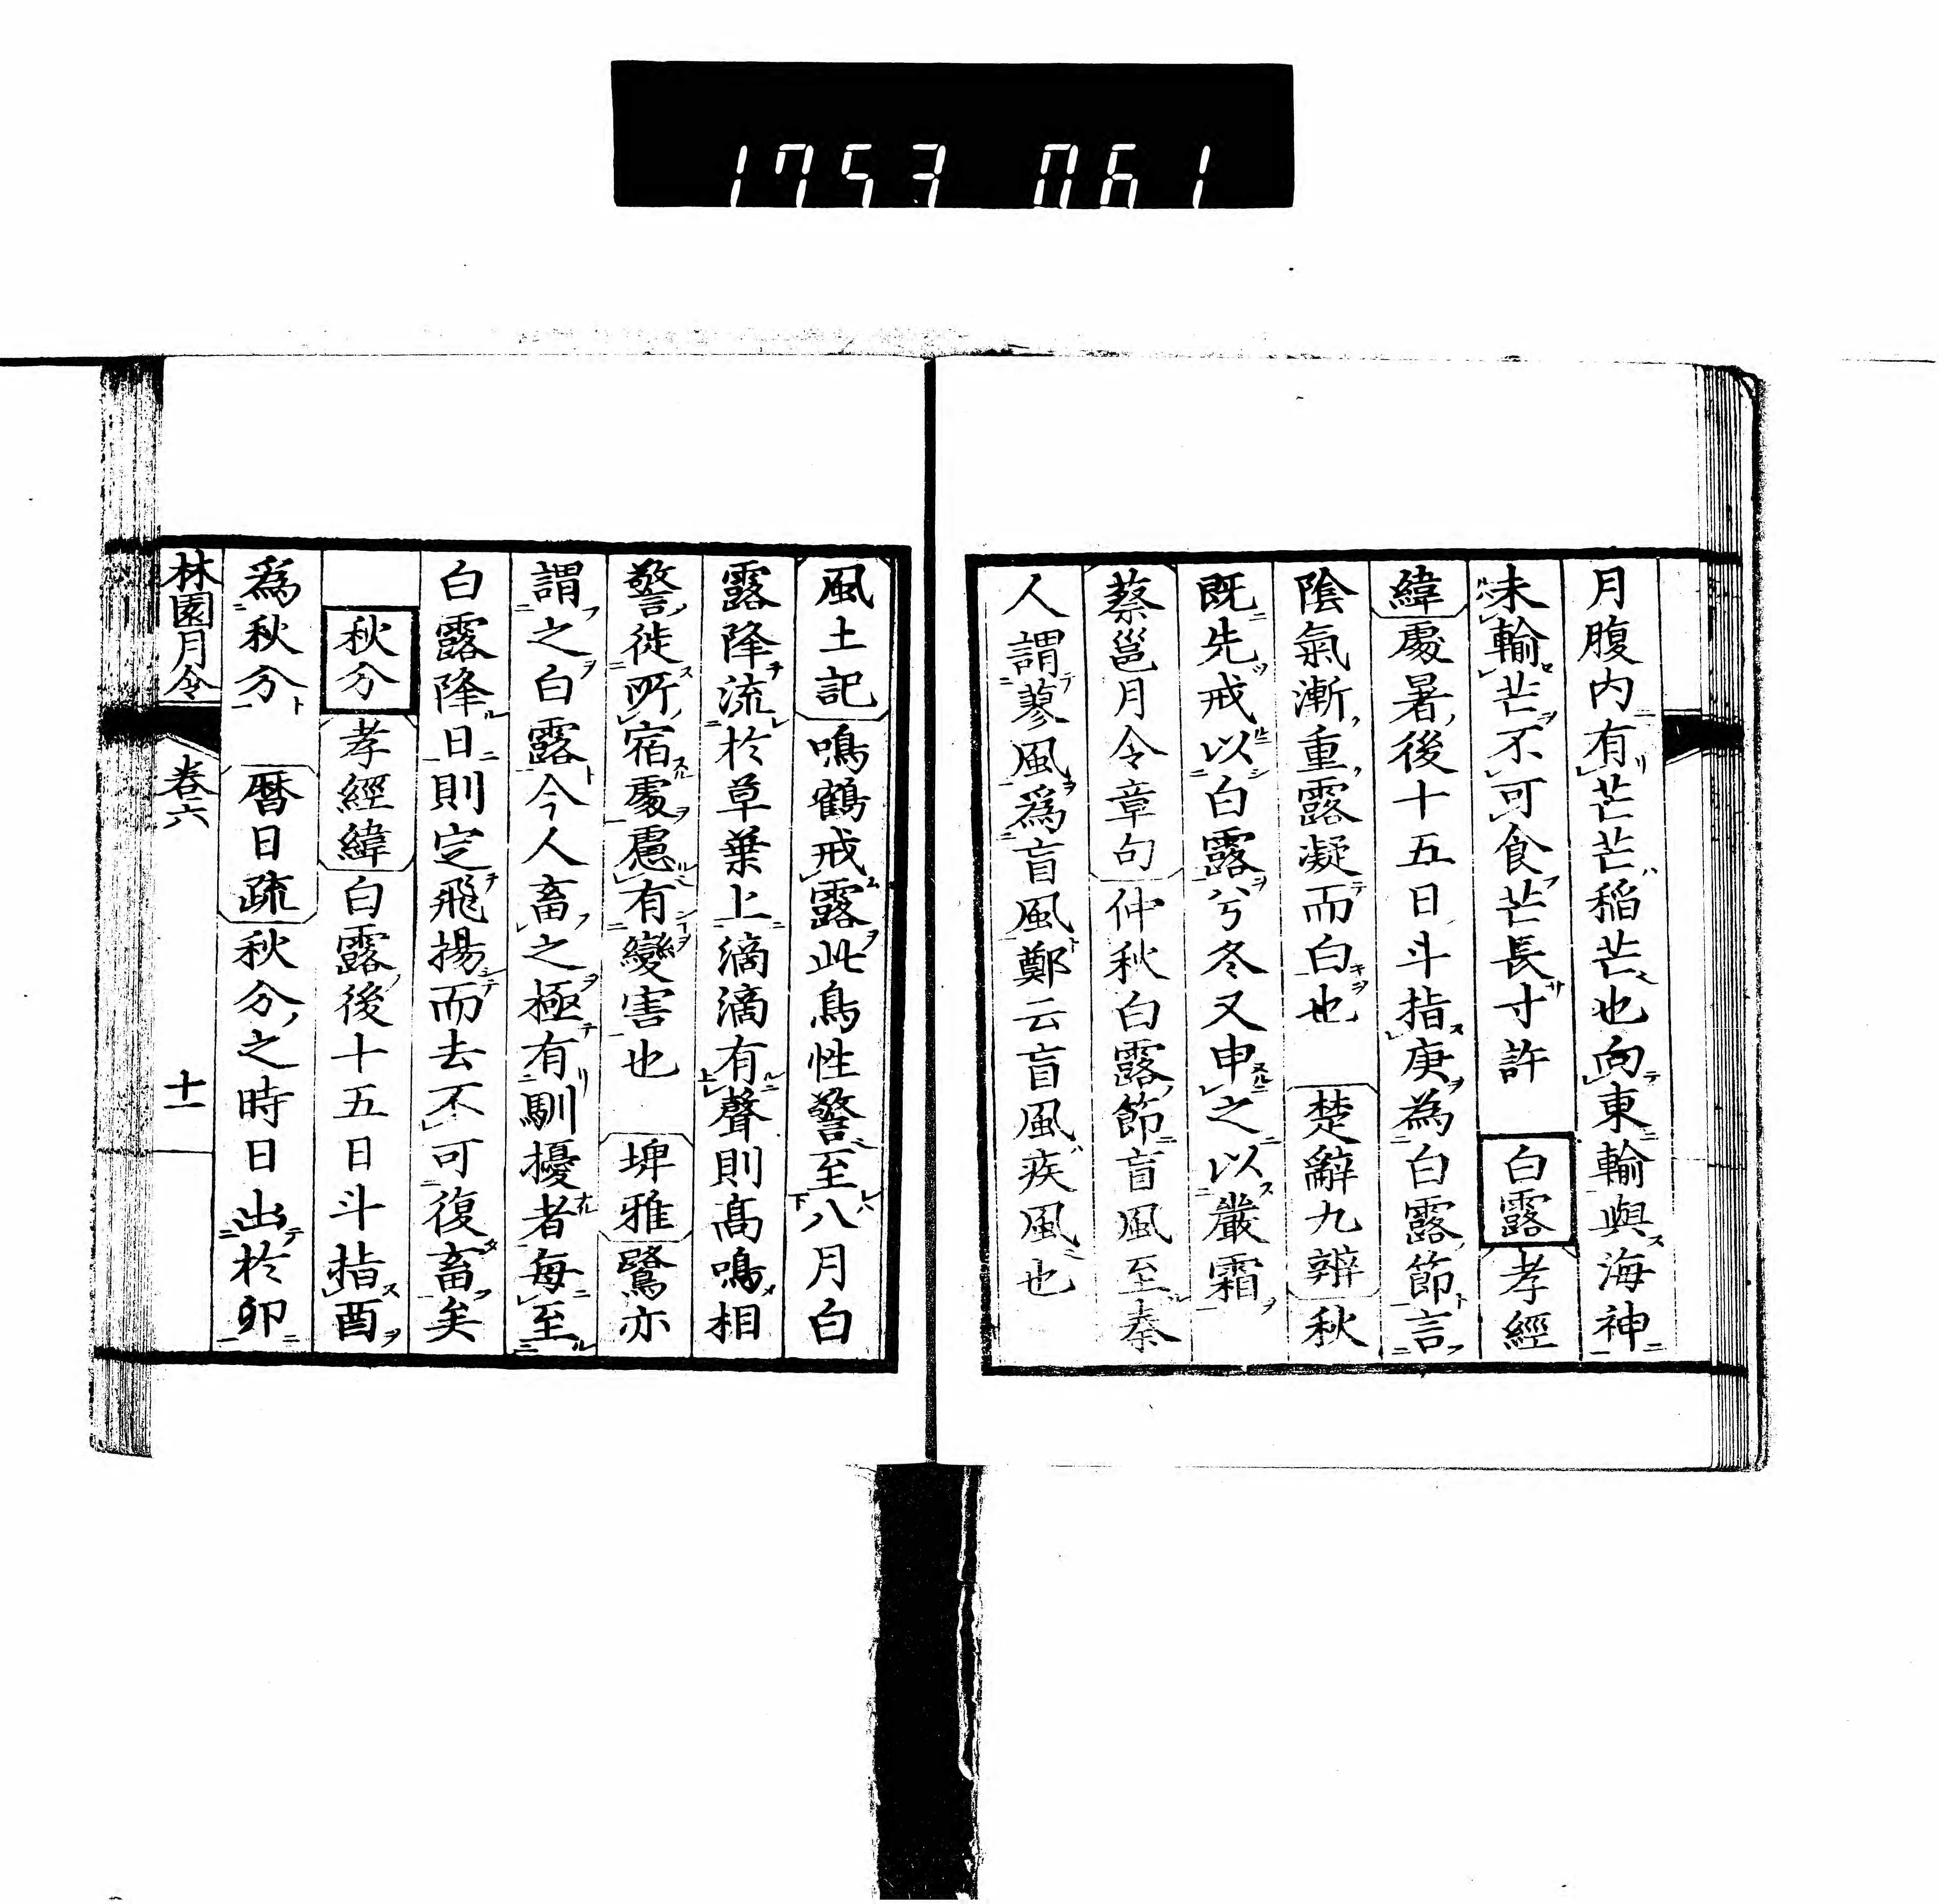 1753 061
月腹内有芒芒稲芒也向東輸與海神
未輸芒不可食芒長寸許 白露 孝經
緯 處暑後十五日斗指庚為白露節言
陰氣漸重露凝而白也 楚辭九辨 秋
既先戒以白露兮冬又申之以嚴霜
蔡邕月令章句 仲秋白露節盲風至秦
人謂蓼風爲盲風鄭云盲風疾風也
風土記 鳴鶴戒露此鳥性警至八月白
露降流於草葉上滴滴有聲則高鳴相
警徙所宿處慮有變害也 埤雅 鷺亦
謂之白露今人畜之極有馴擾者每至
白露降日則定飛揚而去不可復畜矣
秋分 孝經緯 白露後十五日斗指酉
爲秋分 暦日疏 秋分之時日出於卯
林園月令 卷六 十一